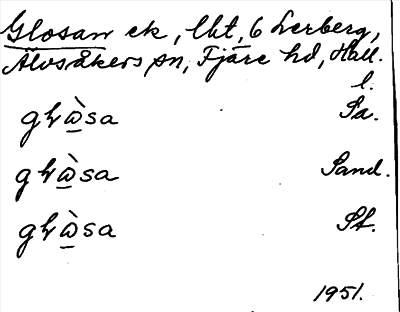 Glosan ek, lht, 6 Lerberg,
Älvsåkers sn, Fjäre hd, Hall.
l.
gɫὼ̲sa Sa.
gɫὼ̲sa Sand.
gɫὼ̲sa St.
1951.